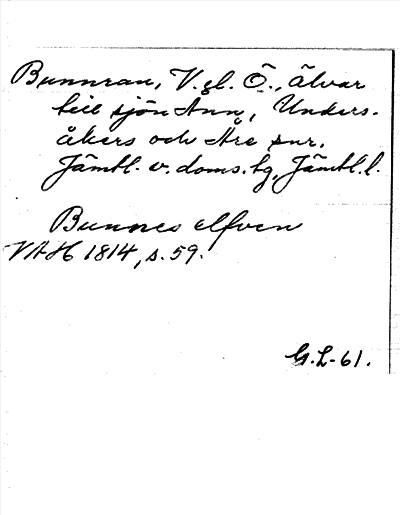 Bunnran, V. gl. Ö., älvar
till sjön Ånn, Unders-
åkers och Åre snr.
Jämtl. v. doms. tg, Jämtl. l.
Bunnes elfven
VAH 1814, s. 59.
G. L-61.